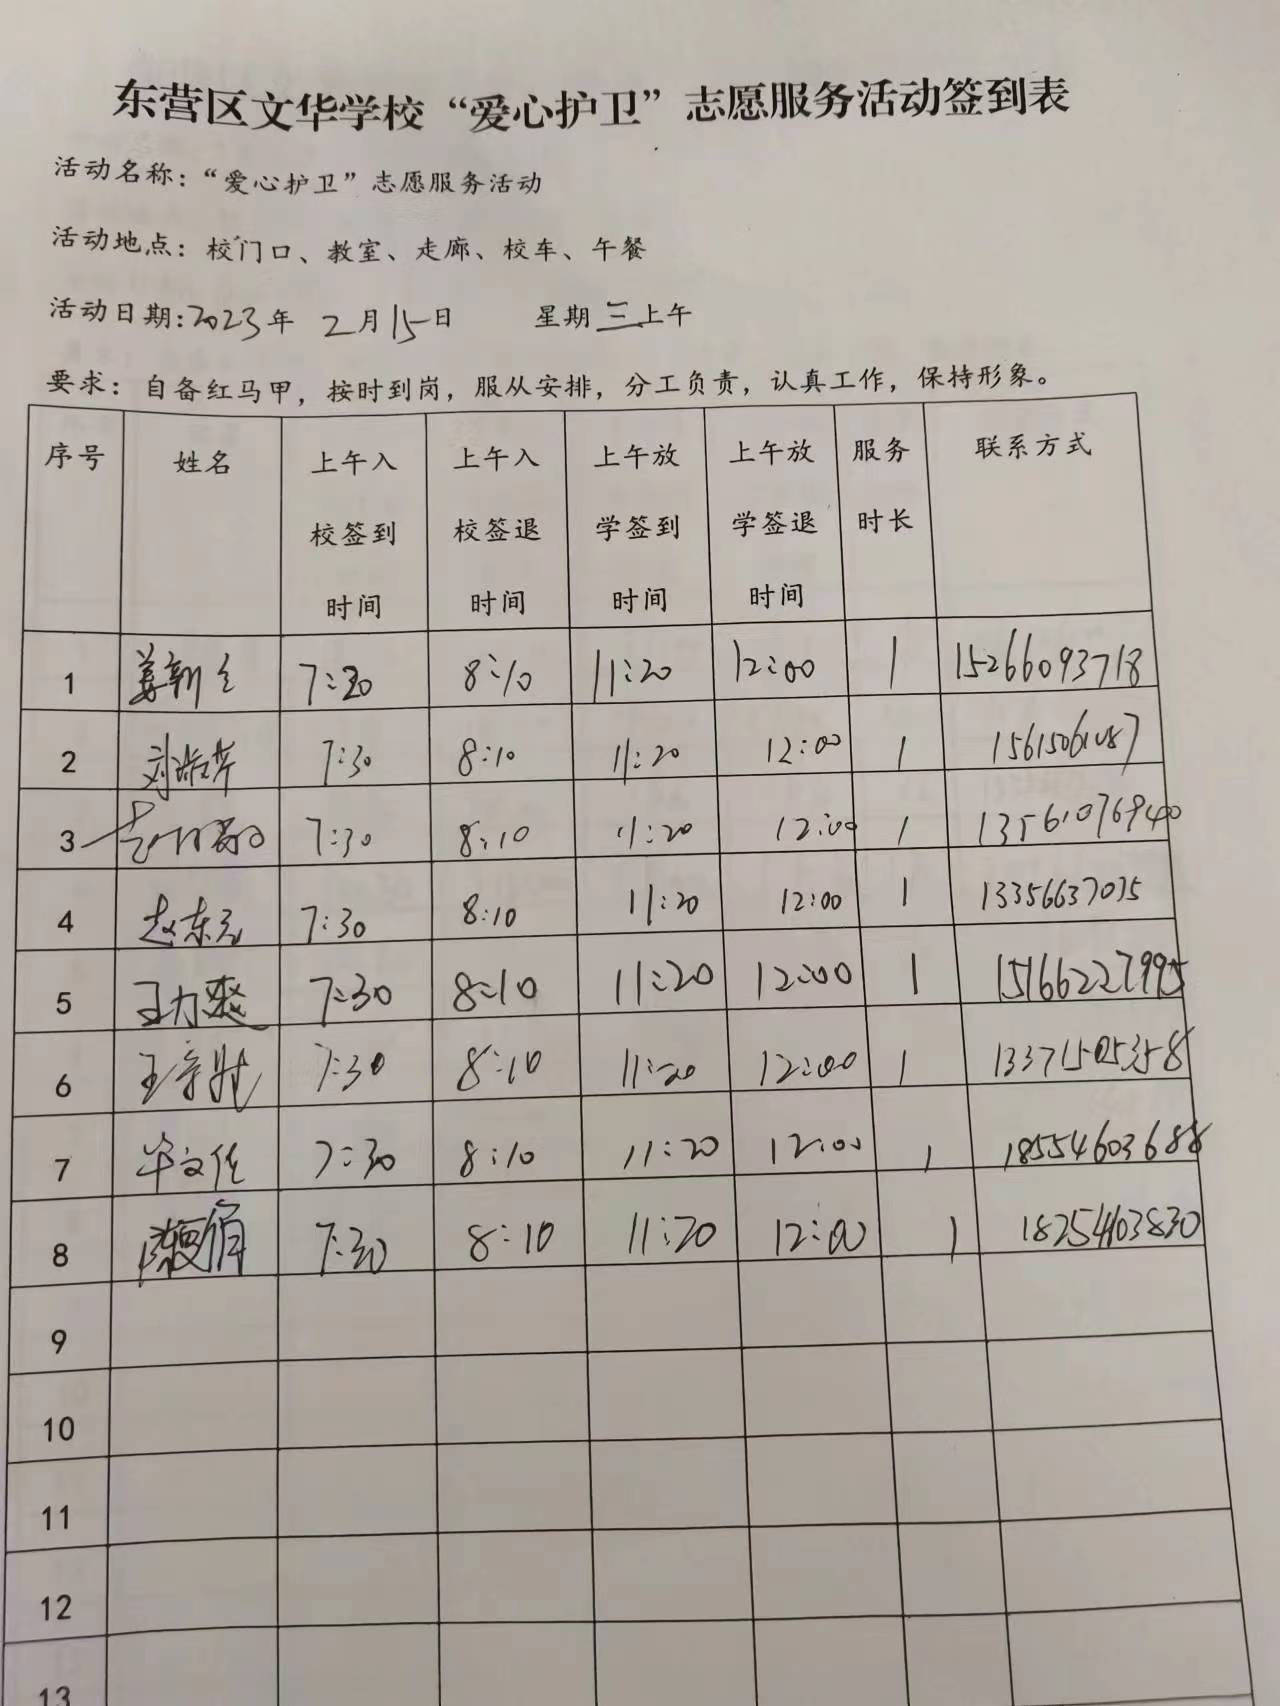 东营区文华学校“爱心护卫”志愿服务活动签到表
活动名称：“爱心护卫”志愿服务活动
活动地点：校门口、教室、走廊、校车、午餐
活动日期：2023年 2月15日 星期三上午
要求：自备红马甲，按时到岗，服从安排，分工负责，认真工作，保持形象。
序号 姓名 上午入校签到时间 上午入校签退时间 上午放学签到时间 上午放学签退时间 服务时长 联系方式
1 7:30 8:10 11:20 12:00 1 15266093718
2 7:30 8:10 11:20 12:00 1
3 7:30 8:10 11:20 12:00 1 13561076940
4 赵东元 7:30 8:10 11:20 12:00 1 13356637075
5 王力爽 7:30 8:10 11:20 12:00 1 15166227995
6 7:30 8:10 11:20 12:00 1 13371505358
7 毕文佳 7:30 8:10 11:20 12:00 1 18554603688
8 7:30 8:10 11:20 12:00 1 18254603830
9
10
11
12
13